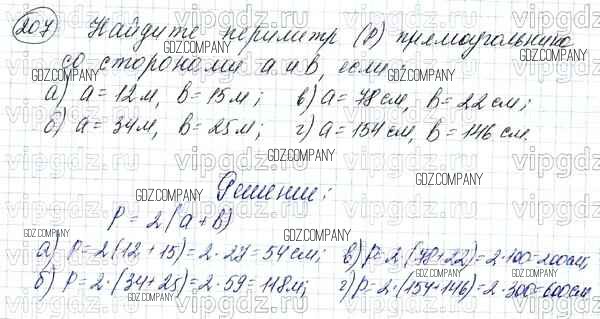 207 Найдите периметр (P) прямоугольника
со сторонами a и b, если:
а) a = 12 м, b = 15 м; в) a = 78 см, b = 22 см;
б) a = 34 м, b = 25 м; г) a = 154 см, b = 146 см.
Решение:
P = 2(a+b)
а) P = 2(12 + 15) = 2·27 = 54 см; в) P = 2·(78+22) = 2·100 = 200 см;
б) P = 2·(34+25) = 2·59 = 118 м; г) P = 2·(154+146) = 2·300 = 600 см